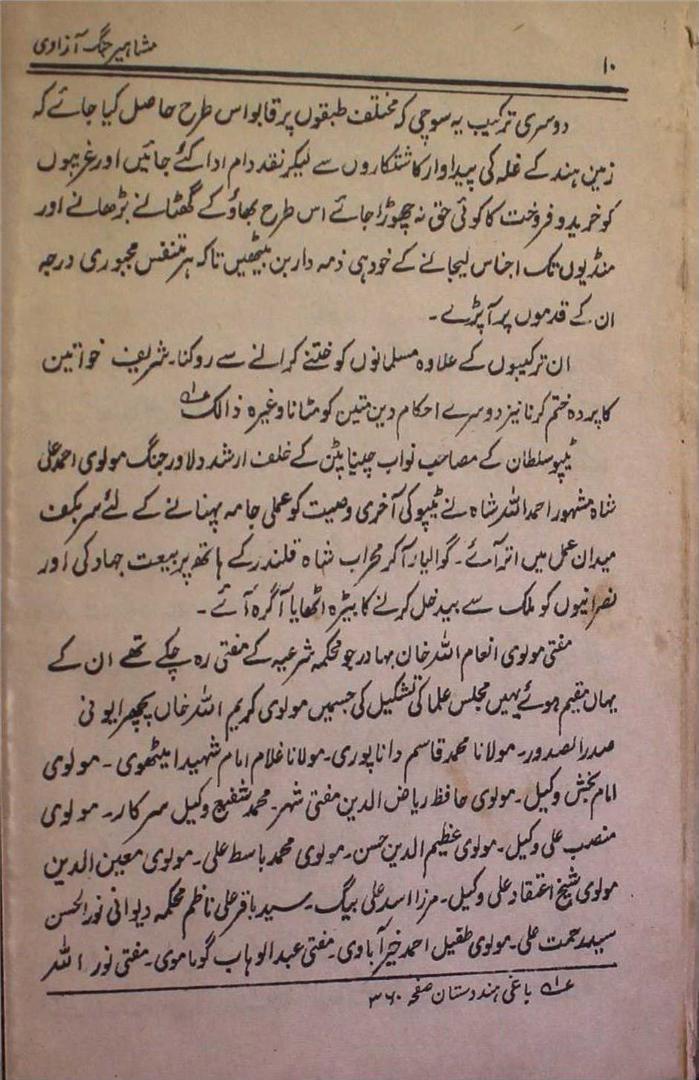 ۱۰
مشاہیر جنگ آزادی
دوسری ترکیب یہ سوچی کہ مختلف طبقوں پر قابو اس طرح حاصل کیا جائے کہ
زمین ہند کے غلہ کی پیداوار کاشتکاروں سے لیکر نقد دام ادا کئے جائیں اور غریبوں
کو خرید و فروخت کا کوئی حق نہ چھوڑا جائے اس طرح بھاؤ کے گھٹانے بڑھانے اور
منڈیوں تک اجناس لیجانے کے خود ہی ذمہ دار بن بیٹھیں تاکہ ہر متنفس مجبوری درجہ
ان کے قدموں پر آ پڑے۔
ان ترکیبوں کے علاوہ مسلمانوں کو ختنے کرانے سے روکنا۔ شریف خواتین
کا پردہ ختم کرنا نیز دوسرے احکام دین متین کو مٹانا وغیرہ ذالک ؎۱
ٹیپو سلطان کے مصاحب نواب چینا پٹن کے خلف ارشد دلاور جنگ مولوی احمد علی
شاہ مشہور احمد اللہ شاہ نے ٹیپو کی آخری وصیت کو عملی جامہ پہنانے کے لئے سر بکف
میدان عمل میں اتر آئے۔ گوالیار آکر محراب شاہ قلندر کے ہاتھ پر بیعت جہاد کی اور
نصرانیوں کو ملک سے بیدخل کرنے کا بیڑہ اٹھایا آگرہ آئے۔
مفتی مولوی انعام اللہ خان بہادر جو محکمہ شرعیہ کے مفتی رہ چکے تھے ان کے
یہاں مقیم ہوئے یہیں مجلس علما کی تشکیل کی جسمیں مولوی کریم اللہ خاں پچھرایونی
صدر الصدور۔ مولانا محمد قاسم داناپوری۔ مولانا غلام امام شہید امیٹھوی۔ مولوی
امام بخش وکیل۔ مولوی حافظ ریاض الدین مفتی شہر۔ محمد شفیع وکیل سرکار۔ مولوی
منصب علی وکیل۔ مولوی عظیم الدین حسن۔ مولوی محمد باسط علی۔ مولوی معین الدین
مولوی شیخ اعتقاد علی وکیل۔ مرزا اسد علی بیگ۔ سید باقر علی ناظم محکمہ دیوانی نور الحسن
سید رحمت علی۔ مولوی طفیل احمد خیرآبادی۔ مفتی عبدالوہاب گوپاموی۔ مفتی نور اللہ
؎۱ باغی ہندوستان صفحہ ۳۶۰